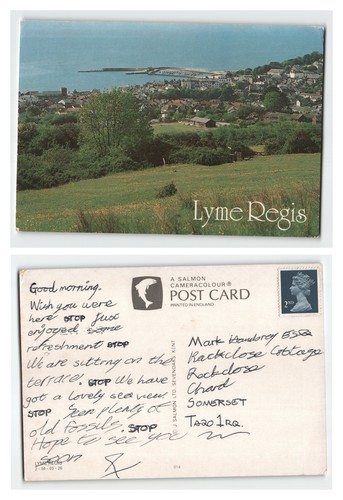 Lyme Regis
Good morning.
Wish you were
here STOP Just
enjoyed some
refreshment STOP
We are sitting on the
terrace. STOP We have
got a lovely sea view
STOP Seen plenty of
old fossils. STOP
Hope to see you
soon
LYME REGIS
2-54-03-28
© J SALMON LTD. SEVENOAKS KENT
A SALMON
CAMERACOLOUR®
POST CARD
PRINTED IN ENGLAND
2ND
Mark ESQ
Rackclose Cottage
Rackclose
Chard
SOMERSET
TA20 1RQ.